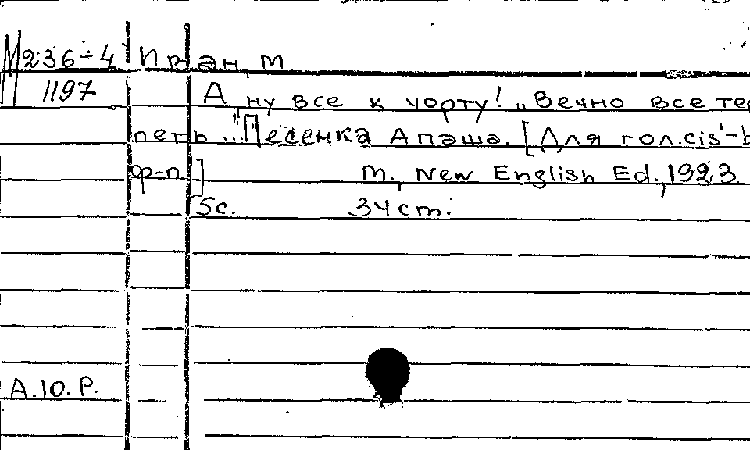 М236-4 Иран, М
1197 А ну все к чорту! „Вечно все те
петь..." Песенка Апаша. [Для гол. cis'-
ф-п.] М., New English Ed., 1923.
5с. 34 cm.
А.Ю.Р.